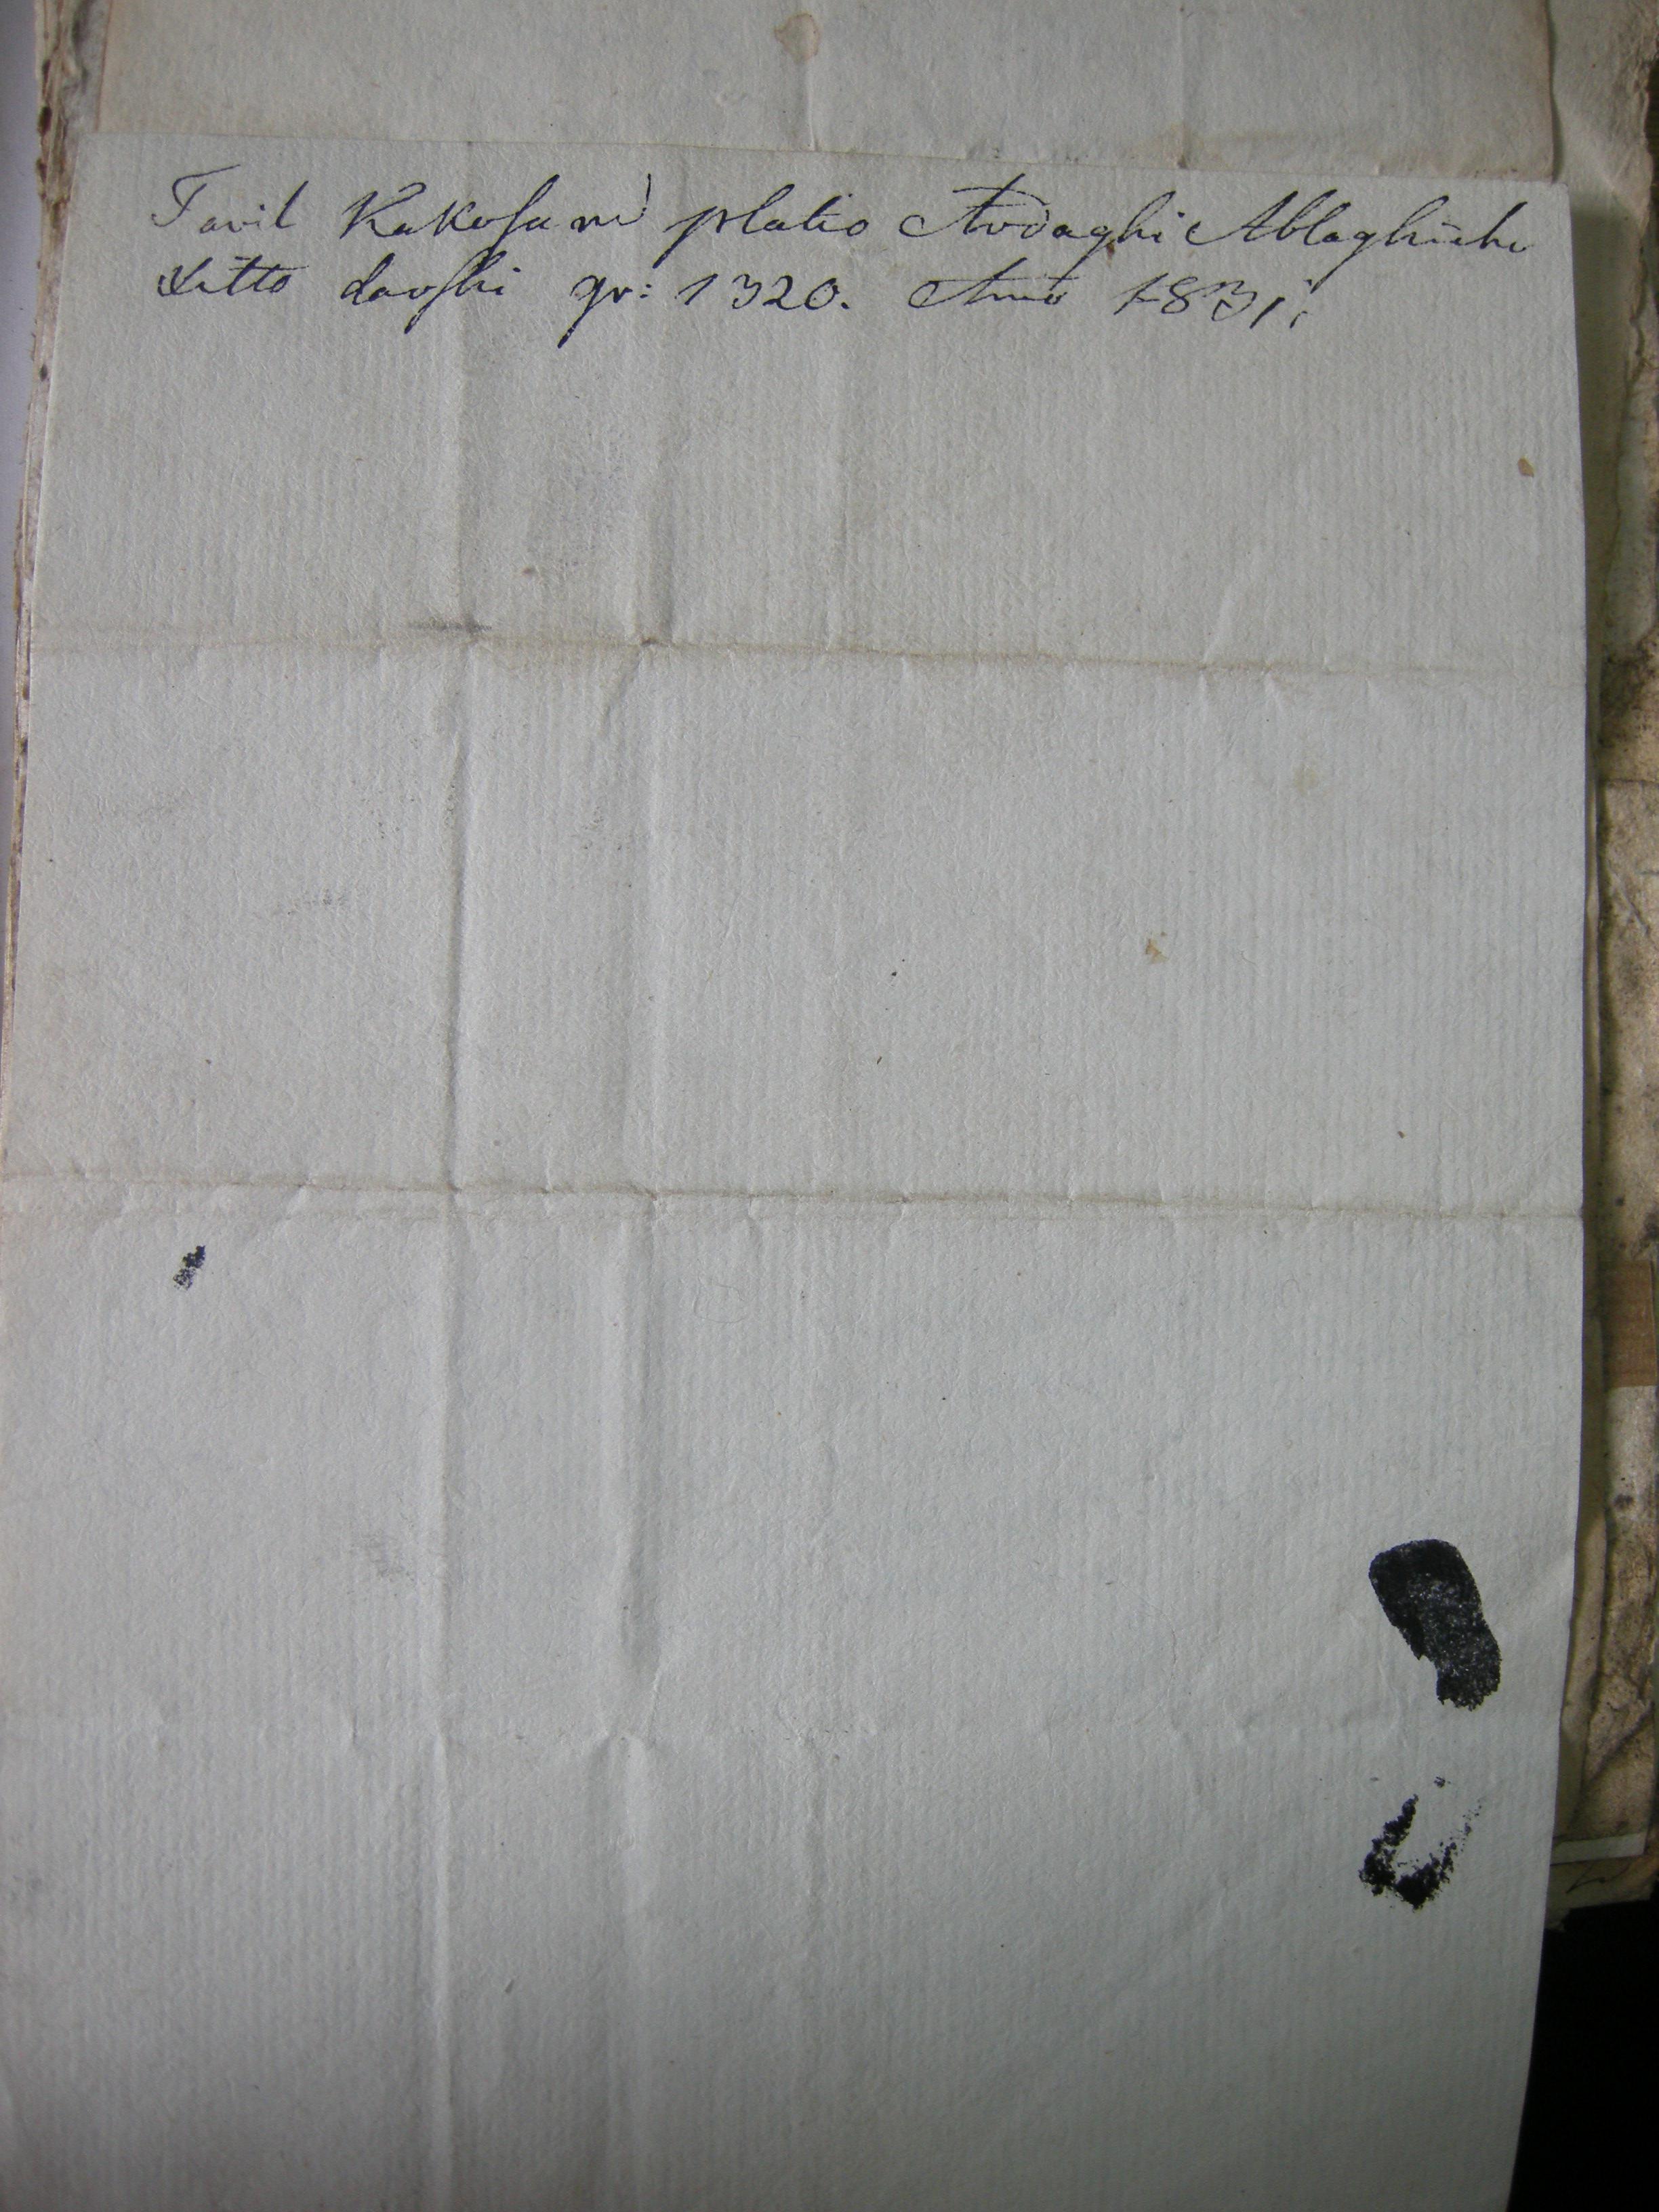 Tavil Kakosam platio Avdaghi Ablaghiehi
Litto davshi gr: 1320. Ano 1831: